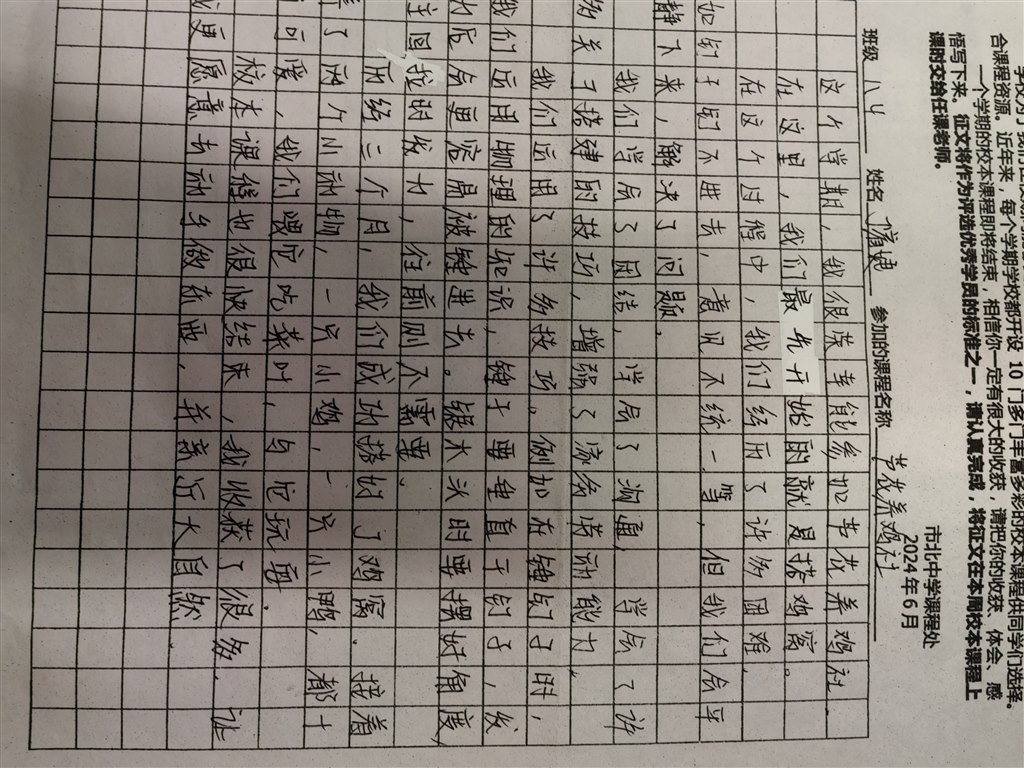 合课程资源。近年来，每个学期学校都开设 10 门多门丰富多彩的校本课程供同学们选择。
一个学期的校本课程即将结束，相信你一定有很大的收获，请把你的收获、体会、感
悟写下来。征文将作为评选优秀学员的标准之一，请认真完成，将征文在本周校本课程上
课时交给任课老师。
市北中学课程处
2024年6月
班级 八4 姓名 参加的课程名称 芦花养鸡社
这个学期，我很荣幸能参加芦花养鸡社。
在这里，我们最先开始的就是搭鸡窝。
在这个过程中，我们经历了许多困难，
如钉子钉不进去，意见不统一等，但我们会平
静下来，解决了问题。
我们学会了团结，学会了沟通，学会了许
多关于搭建的技巧，增强了劳动能力。
我们运用了许多技巧。例如在锤钉子时，
我们运用物理的知识，锤子要垂直于钉子，
会更容易被锤进去。锯木头时要摆好角度
往回拉时发力，往前则不需要。
历经三个月，我们成功搭好了鸡窝。接着
养了两个小动物，一只小鸡，一只小鸭，都十
分可爱，我们喂它吃菜叶，与它玩耍。
校本课程也很快结束，我收获了很多，让
我更愿意去动手做东西，并亲近大自然。